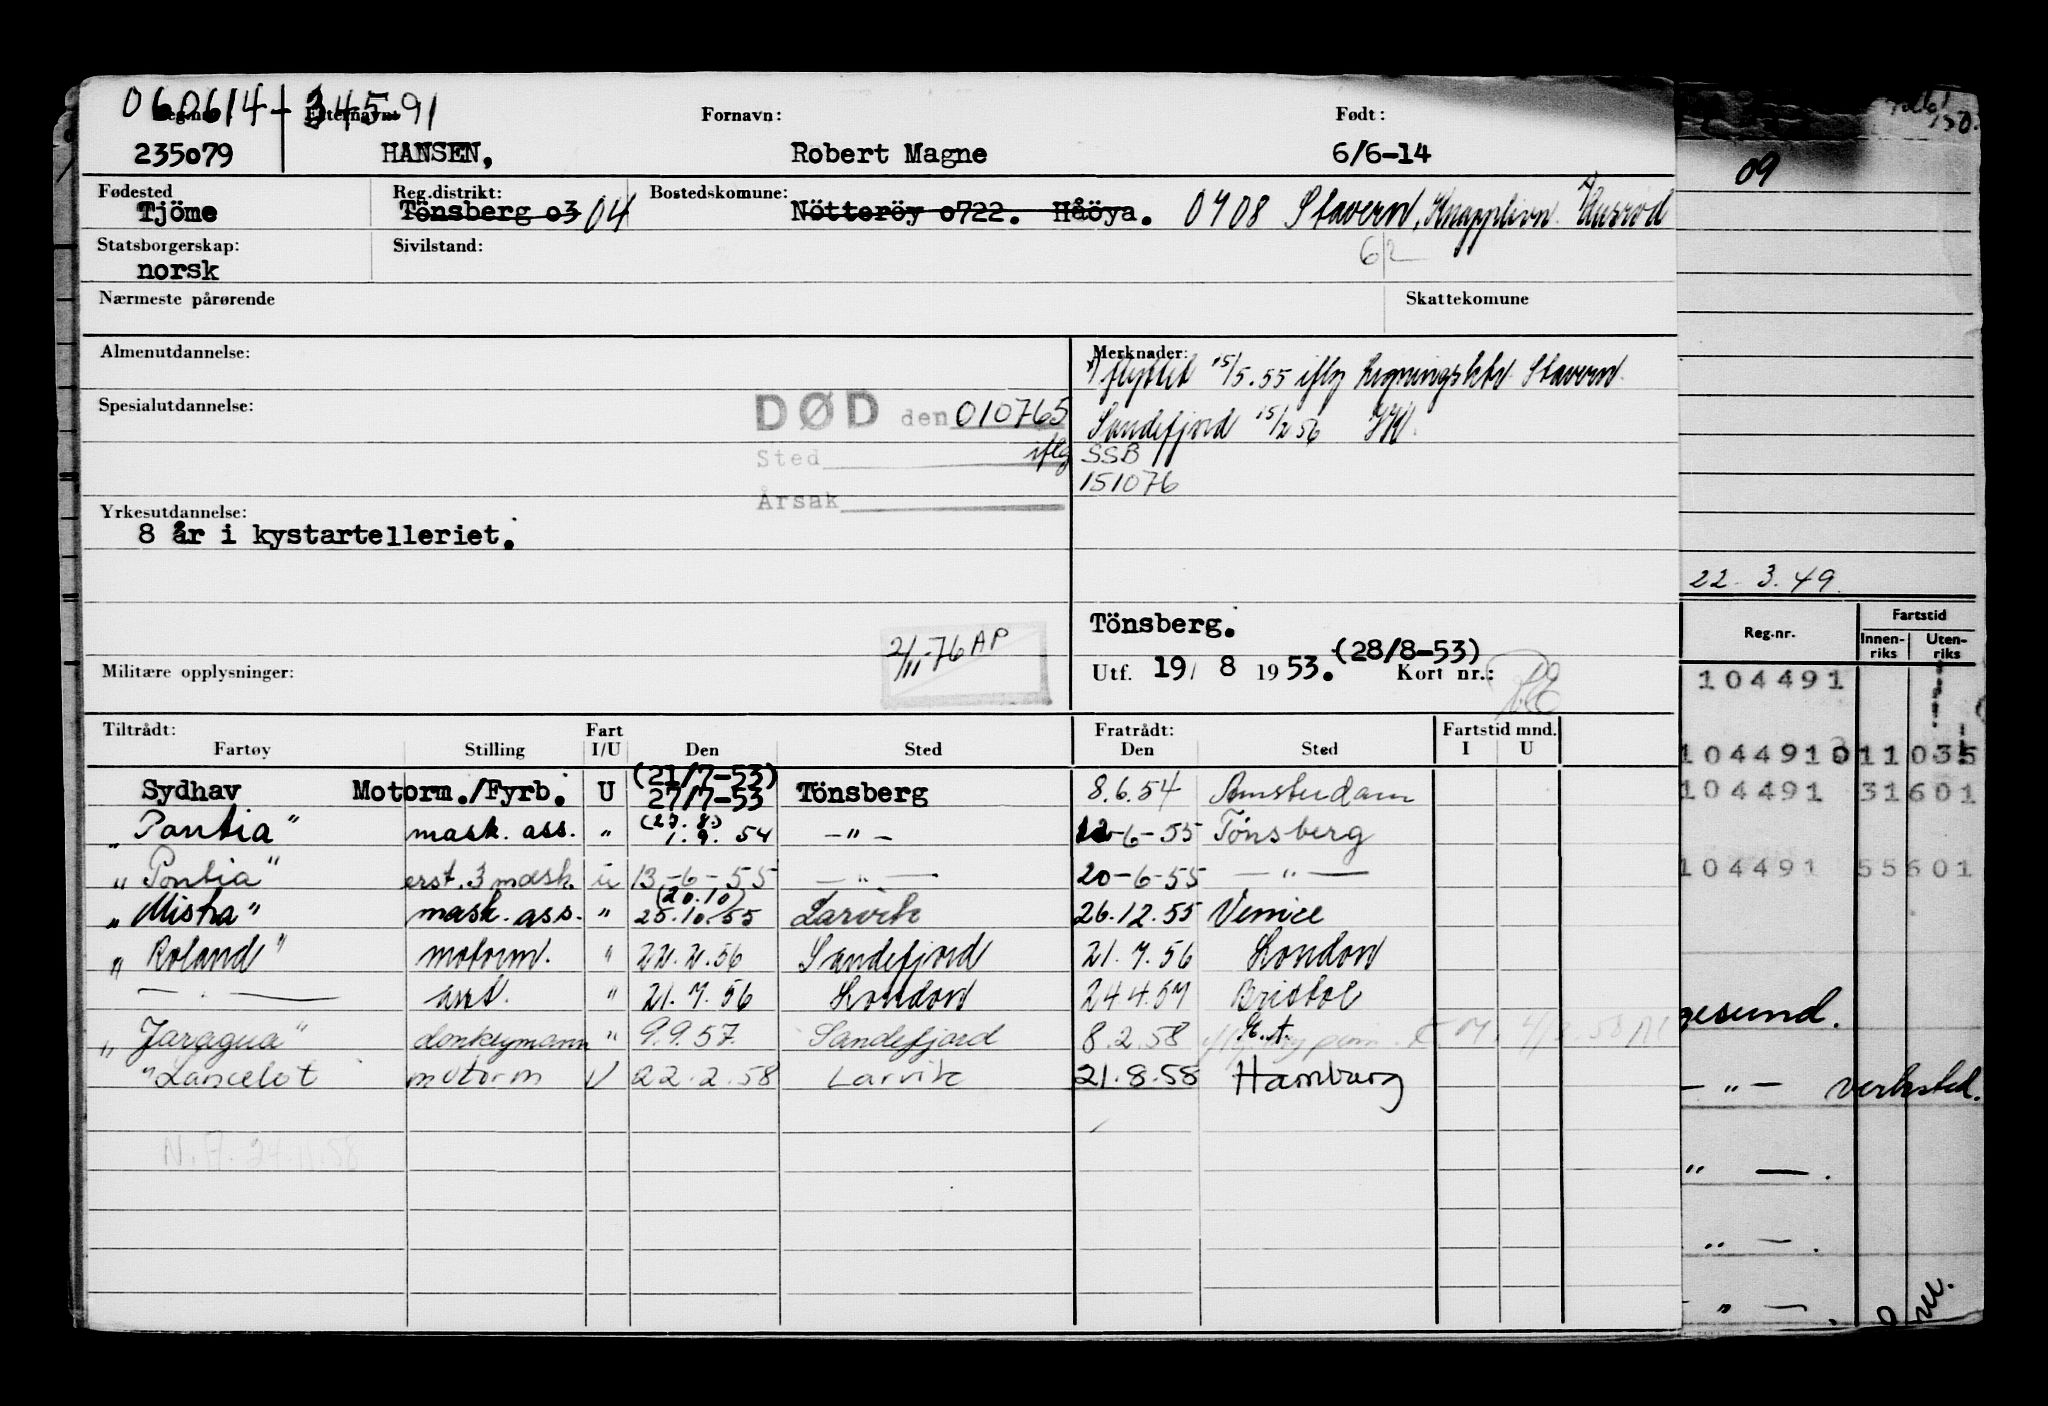 060614-34591
Reg.nr. Etternavn: Fornavn: Født:
235o79 HANSEN, Robert Magne 6/6-14
Fødested Reg.distrikt: Bostedskomune:
Tjöme Tönsberg o3 04 Nötteröy o722. Håöya. 0708 Stavern,
Statsborgerskap: Sivilstand: 62
norsk
Nærmeste pårørende Skattekomune
Almenutdannelse: Merknader:
x) flyttet 15/5.55 iflg Ligningsktr Stavern
Spesialutdannelse: DØD den 010765
Sandefjord 15/2 56
Sted iflg SSB
151076
Årsak
Yrkesutdannelse:
8 år i kystartelleriet.
Tönsberg.
2/11-76 AP
(28/8-53)
Militære opplysninger: Utf. 19/ 8 1953. Kort nr.:
Tiltrådt: Fart Fratrådt: Fartstid mnd.
Fartøy Stilling I/U Den Sted Den Sted I U
(21/7-53)
Sydhav Motorm./Fyrb. U 27/7-53 Tönsberg 8.6.54 Amsterdam
(27.8.)
"Pontia" mask. ass. " 1.9.54 -"- 12-6-55 Tönsberg
"Pontia" erst. 3 mask. u 13-6-55 -"- 20-6-55 -"-
(20.10)
"Mistra" mask. ass. " 25.10.55 Larvik 26.12.55 Venice
"Roland" motorm. " 22.2.56 Sandefjord 21.7.56 London
- . - " 21.7.56 London 24.4.57 Bristol
"Jaragua" donkeymann " 9.9.57. Sandefjord 8.2.58
"Lancelot motorm U 22.2.58 Larvik 21.8.58 Hamburg
N.A. 24.11.58
09
22. 3. 49.
Reg.nr. Fartstid
Innenriks Utenriks
104491
104491 011035
104491 31601
104491 55601
gesund.
- " - verksted.
" - .
" - .
" - .